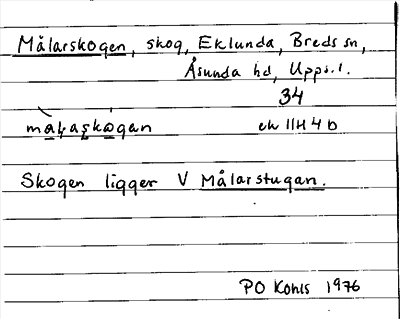 Målarskogen, skog, Eklunda, Breds sn,
Åsunda hd, Upps. l.
34
ek 11H4b
Skogen ligger V Målarstugan.
PO Konls 1976